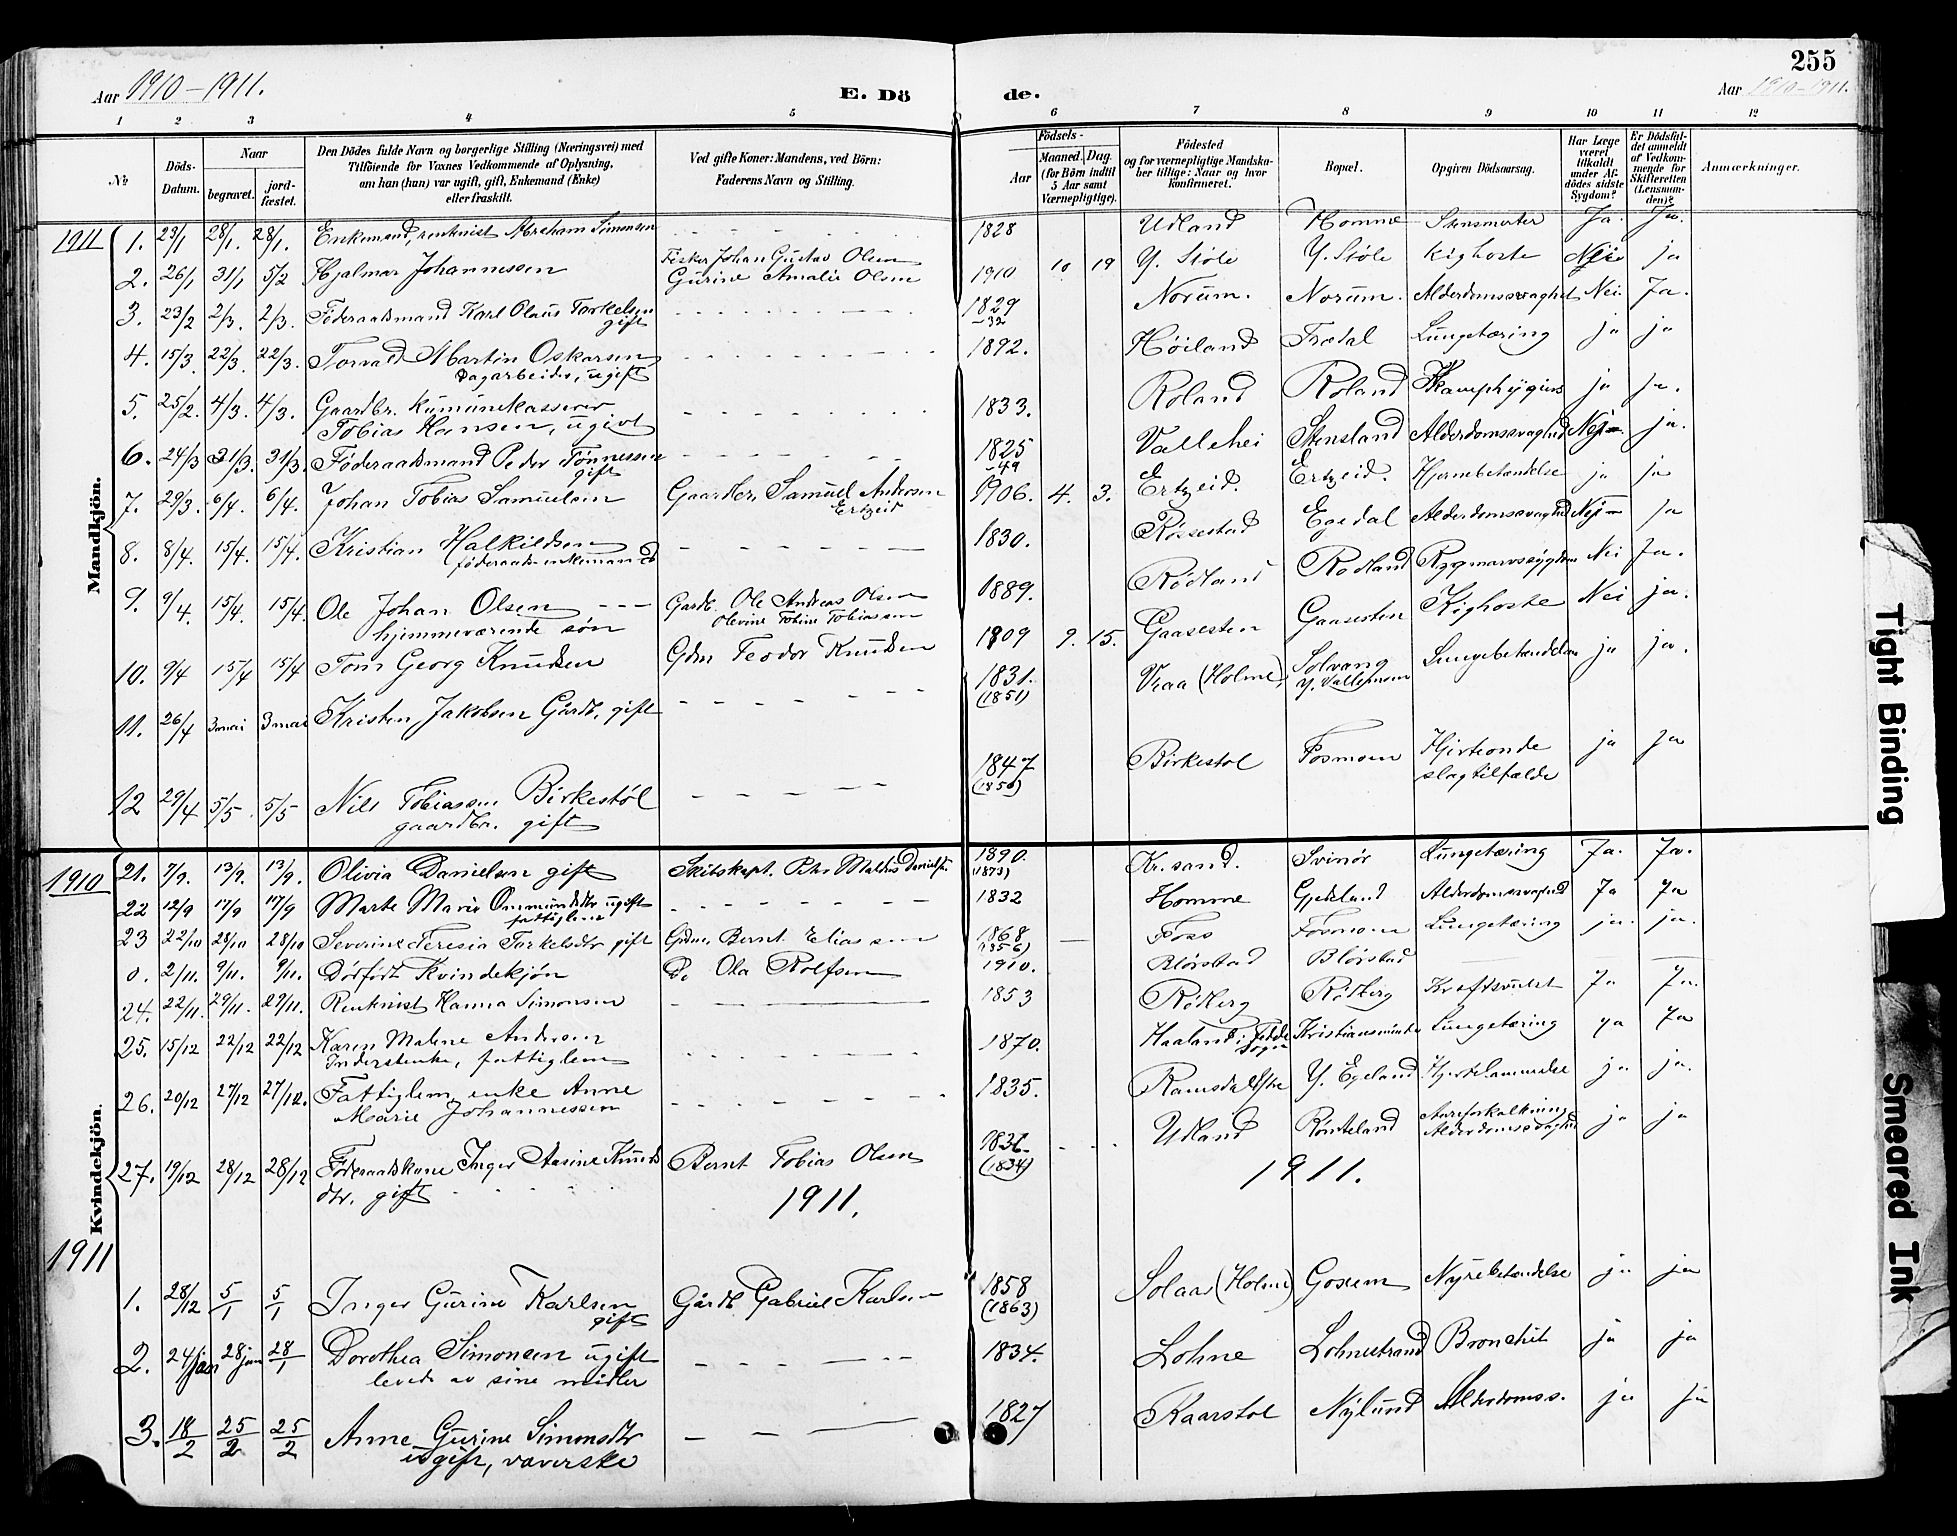 255
Aar 1910-1911. E. Dö de. Aar 1910-1911.
1 2 3 4 5 6 7 8 9 10 11 12
№
Döds-Datum.
Naar
begravet.
jord-fæstet.
Den Dödes fulde Navn og borgerlige Stilling (Næringsvei) med
Tilföiende for Voxnes Vedkommende af Oplysning,
om han (hun) var ugift, gift, Enkemand (Enke)
eller fraskilt.
Ved gifte Koner: Mandens, ved Börn:
Faderens Navn og Stilling.
Födsels-
Aar
Maaned. Dag.
(for Börn indtil
5 Aar samt
Værnepligtige).
Födested
og for værnepligtige Mandska-
ber tillige: Naar og hvor
konfirmeret.
Bopæl.
Opgiven Dödsaarsag.
Har Læge
været
tilkaldt
under Af-
dödes sidste
Sygdom?
Er Dödsfal-
det anmeldt
af Vedkom-
mende for
Skifteretten
(Lensman-
den)?
Anmærkninger.
Mandkjön.
1911
1. 23/1 28/1. 28/1. Enkemand, renknist Abraham Simonsen 1828 Udland Homme Stensmerter Ja. Ja.
2. 26/1 31/1 5/2 Hjalmar Johannessen Fisker Johan Gustav Olsen
Gurine Amalie Olsen 1910 10 19 Y. Støle Y. Støle Kighoste Nei ja
3. 23/2 2/3. 2/3. Føderaadsmand Karl Olaus Torkelsen
gift 1829
-32 Norum. Norum. Alderdomssvaghet Nei. Ja.
4. 15/3. 22/3. 22/3. Torvald Martin Oskarsen
Dagarbeider, ugift 1892. Høiland Trædal Lungetæring ja ja
5. 25/2. 4/3. 4/3. Gaardbr. kumunekasserer
Tobias Hansen, ugivt 1833. Roland Roland ja ja.
6. 24/3 31/3. 31/3. Føderaadsmand Peder Tønnessen
gift 1825
-49 Vallehei Stensland Alderdomssvaghed Nei ja.
7. 29/3. 6/4. 6/4. Johan Tobias Samuelsen Gaardbr. Samuel Andersen
Ertzeid 1906. 4. 3. Ertzeid. Ertzeid. Hjernebetændelse ja ja
8. 8/4. 15/4. 15/4. Kristian Halkildsen
føderaads-enkemand 1830. Røssestad Egedal Alderdomssvaghed Nei ja
9. 9/4. 15/4. 15/4. Ole Johan Olsen
hjemmeværende søn Gardb. Ole Andreas Olsen
Olevine Tobine Tobiassen 1889. Rødland Rødland Rygmarvssygdom Nei Ja.
10. 9/4 15/4 15/4 Tom Georg Knudsen Gdm Teodor Knudsen 1909 9. 15. Gaasesten Gaasesten Kighoste Nei ja.
11. 26/4 3 mai 3 mai Kristen Jakobsen Gårdb. gift 1831.
(1851) Vraa (Holme) Solvang
Y. Vallemoen Lungebetændelse ja ja.
12 29/4 5/5. 5/5 Nils Tobiassen Birkestøl
gaardbr. gift 1847
(1850) Birkestøl Fosmoen Hjerteonde
slagtilfælde ja ja
Kvindekjön.
1910
21. 7/9. 13/9. 13/9. Olivia Danielsen gift Skibskapt. Peder Mathias Danielsen 1890.
(1873) Kr. sand. Svinør Lungetæring Ja. Ja.
22 12/9 17/9 17/9 Marte Marie Ommundsdtr ugift
fattiglem 1832 Homme Gjekland Alderdomssvaghed Ja Ja
23 22/10 28/10 28/10 Severine Teresia Torkelsdtr gift Gdm. Bernt Eliassen 1868
(1856) Foss Fosmoen Lungetæring ja. ja.
0. 2/11. 9/11. 9/11. Dødfødt Kvindekjøn Do Ola Rolfsen 1910. Blørstad Blørstad
24. 22/11. 29/11. 29/11. Renknist Hanna Simonsen 1853 Rødberg Rødberg Kræftsvulst Ja Ja.
25. 15/12 22/12 22/12 Karen Malene Andersen
Inderstenke, fattiglem 1870. Haaland i Feda Sogn Kristiansminde Lungetæring ja Ja
26. 20/12 27/12 27/12. Fattiglem, enke Anne
Marie Johannessen 1835. Ramsdal Y. Egeland Hjertelammelse ja ja.
27. 19/12 28/12 28/12 Føderaadskone Inger Aasine Knuds
dtr. gift Bernt Tobias Olsen 1836
(1834) Udland Rønteland Aareforkalkning
Alderdomssvaghed ja ja
1911. 1911.
1911
1. 28/12 5/1 5/1 Inger Gurine Karlsen
gift Gårdb Gabriel Karlsen 1858
(1863) Solaas (Holme) Goseem Nyrebetændelse ja ja
2. 24/jan 28 jan 28/1 Dorothea Simonsen ugift
levede av sine midler 1834. Lohne Lohnestrand Bronchit ja ja
3. 18/2 25/2 25/2 Anne Gurine Simonsdtr
ugift, væverske 1827 Kaarstøl Nylund Alderdomss. ja ja
Tight Binding
Smeared Ink